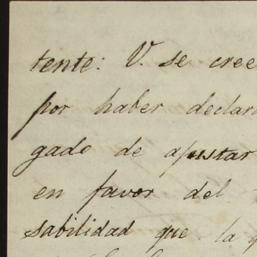 tente: V. se cree
por haber declar
gado de ajustar
en favor del
sabilidad que la